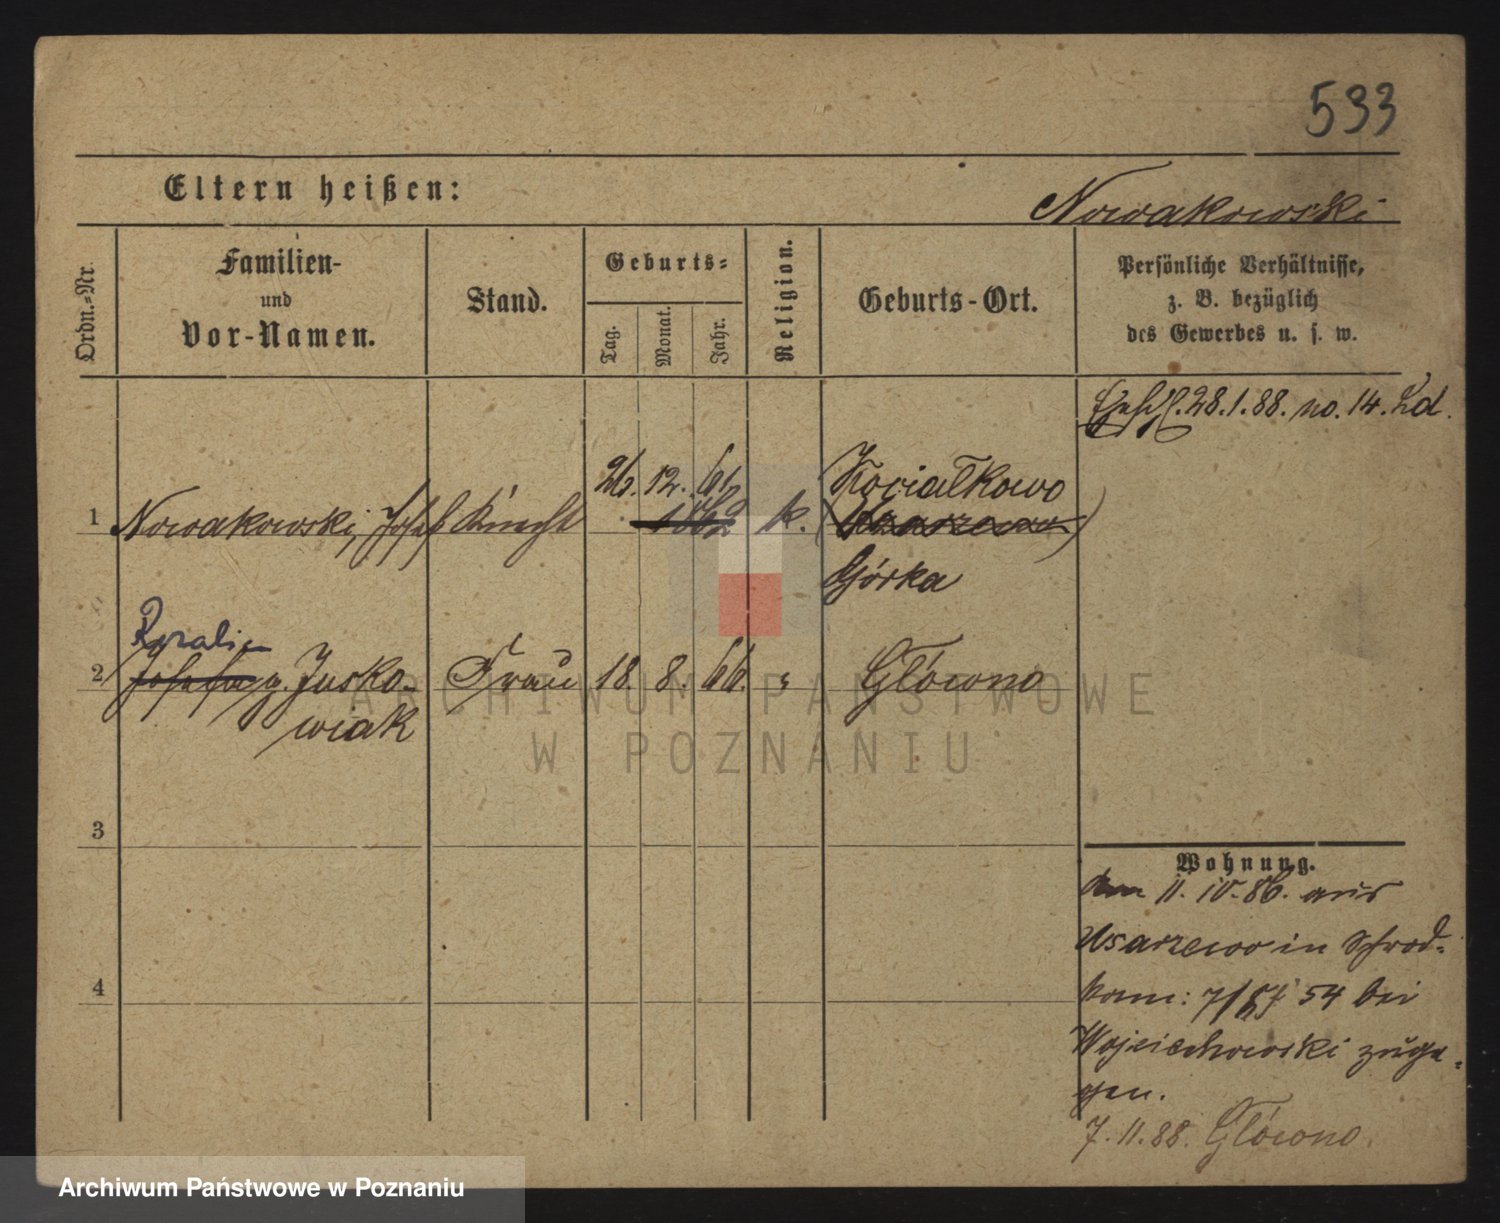 533
Eltern heißen:
Nowakowski
Ordn.-Nr.
Familien-
und
Vor-Namen.
Stand.
Geburts-
Tag.
Monat.
Jahr.
Religion.
Geburts-Ort.
Persönliche Verhältnisse,
z. B. bezüglich
des Gewerbes u. s. w.
28.1.88. no. 14.
26. 12. 61
Kocialkowo
1 Nowakowski, Josef Knecht k.
Górka
Rosalie
2 Josefa g. Jusko- Frau 18. 8. 66. " Glówno
wiak
3
4
Wohnung.
11. 10. 86. aus
Usarzewo in Schrod-
54 bei
Wojciechowski zuge-
gen.
7. 11. 88. Glówno.
ARCHIWUM PAŃSTWOWE
W POZNANIU
Archiwum Państwowe w Poznaniu